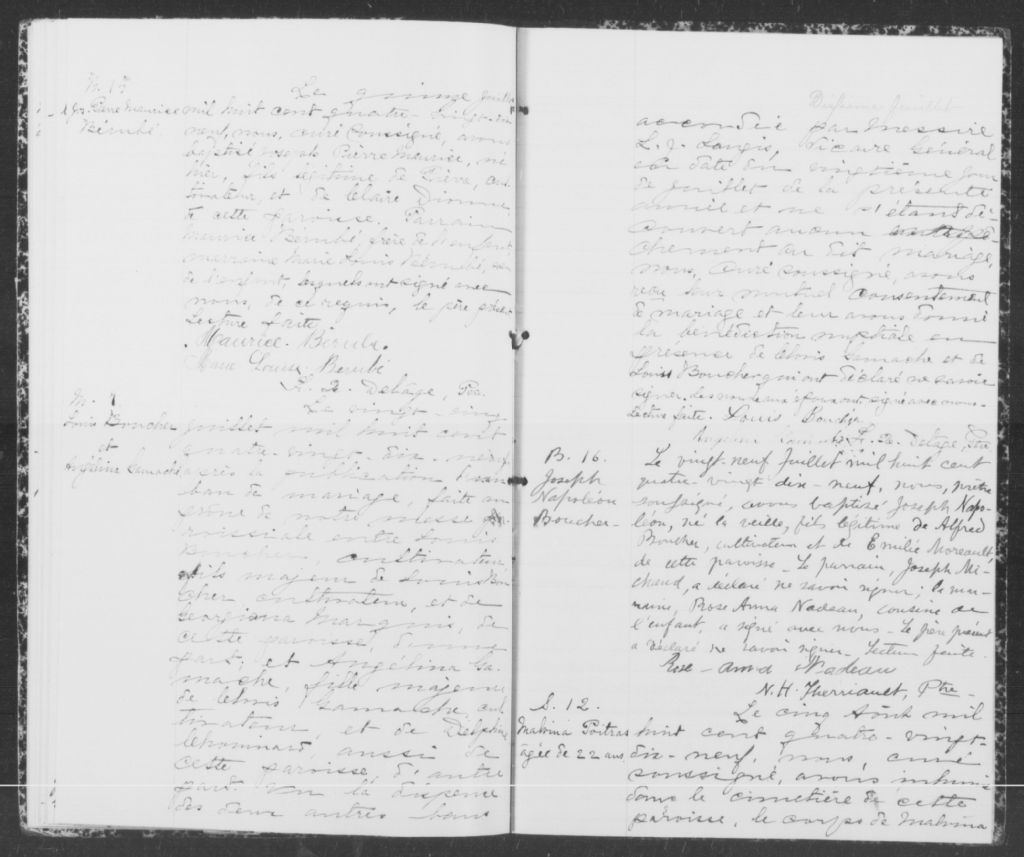 B. 15
Le quinze Juillet
Jos. Pierre Maurice
Bérubé.
mil huit cent quatre-vingt-dix
neuf, nous, curé soussigné, avons
baptisé Joseph Pierre Maurice, né
hier, fils légitime de Piérre, cul
tivateur, et de Claire Dionne
de cette paroisse. Parrain
Maurice Bérubé, frère de l'enfant
marraine Marie Louise Bérubé,
de l'enfant, lesquels ont signé avec
nous, de ce requis, le père présent
Lecture faite.
Maurice Bérubé.
Marie Louise Berubé
L. Z. Delâge, Ptre.
M.
Le vingt-cinq
Louis Boucher
et
Angélina Gamache
juillet mil huit cent
quatre-vingt-dix-neuf
après la publication d'un
ban de mariage, faite au
prône de notre messe pa
roissiale entre Louis
Boucher, cultivateur,
fils majeur de Louis Bou
cher cultivateur, et de
Georgiana Marquis, de
cette paroisse, d'une
part; et Angélina Ga
mache, fille majeure
de Louis Gamache, cul
tivateur, et de Delphine
aussi de
cette paroisse, d'autre
part. Vu la dispense
des deux autres bans
Dixhume Juillet
accordée par Messire
L. J. Langis, Vicaire Général
en date du vingtième jour
de juillet de la présente
année et ne s'étant dé-
couvert aucun empê-
chement au dit mariage,
nous, curé soussigné, avons
reçu leur mutuel consentement
de mariage et leur avons donné
la bénédiction nuptiale en
présence de Louis Gamache et de
Louis Boucher qui ont déclaré ne savoir
signer, les nouveaux époux ont signé avec nous.
Lecture faite. Louis Boucher
L. Z. Delâge, Ptre
B. 16.
Joseph
Napoléon
Boucher-
Le vingt-neuf Juillet mil huit cent
quatre-vingt dix-neuf, nous, prêtre
soussigné, avons baptisé Joseph Napo-
léon, né la veille, fils légitime de Alfred
Boucher, cultivateur et de Emilie Moreault
de cette paroisse - Le parrain, Joseph Mi-
chaud, a déclaré ne savoir signer; la mar-
raine, Rose Anna Nadeau, cousine de
l'enfant, a signé avec nous - Le père présent
a déclaré ne savoir signer. Lecture faite.
Rose-anna Nadeau
N. H. Therriault, Ptre-
S. 12.
Le cinq Août mil
Malvina Poitras
âgée de 22 ans.
huit cent quatre-vingt-
dix-neuf, nous, curé
soussigné, avons inhumé
dans le cimetière de cette
paroisse, le corps de Malvina